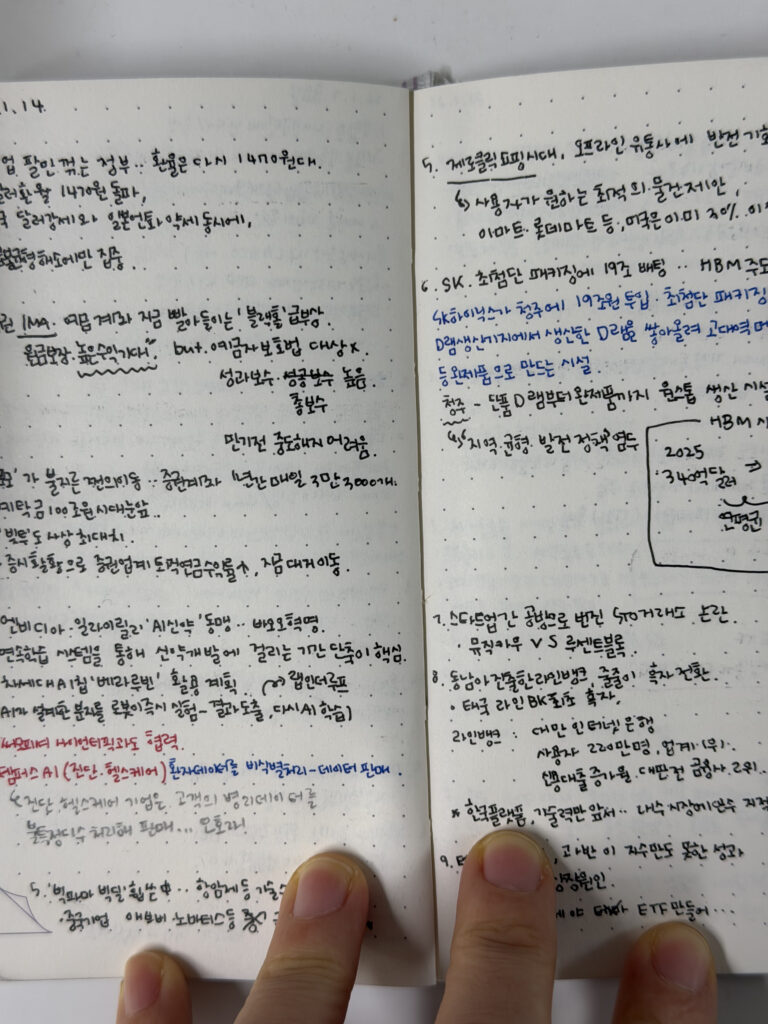 1.14.
업 팔만 꺾는 정부.. 환율은 다시 1470원대.
환율 1470원 돌파,
달러강세와 일본엔화 약세 동시에,
해소에만 집중
IMA. 예금계좌 자금 빨아들이는 '블랙홀' 급부상
원금보장·높은수익기대" but. 예금자보호법 대상 x
성과보수·성공보수 높음
총보수
만기전 중도해지 어려움
가 불지른 쩐의이동.. 증권계좌 1년간 매일 3만 3000개.
예탁금 100조원시대 눈앞
'빚투'도 사상 최대치
증시활황으로 증권업계 퇴직연금수익률↑, 자금 대거이동.
엔비디아·일라이릴리 'AI신약' 동맹.. 바이오혁명
연속학습 시스템을 통해 신약개발에 걸리는 기간 단축이 핵심
차세대 AI칩 '베라루빈' 활용 계획 랩인더루프
AI가 설계한 분자를 로봇이 즉시 실험 - 결과도출, 다시 AI 학습)
사이언티픽과도 협력
템퍼스 AI (진단·헬스케어) 환자데이터를 비식별처리 - 데이터 판매.
진단 헬스케어 기업은 고객의 병리데이터를
불특정다수 처리해 판매...
5. '빅파마 빅딜' 휩쓴 中.. 항암제 등 기술
·중국기업 애브비 노바티스 등
5. 제로클릭쇼핑시대, 오프라인 유통사에 반전 기회
사용자가 원하는 최적의 물건제안,
이마트·롯데마트 등, 미국은 이미 30%
6. SK. 최첨단 패키징에 19조 베팅.. HBM 주도
SK하이닉스가 청주에 19조원 투입. 최첨단 패키징
D램생산기지에서 생산한 D램을 쌓아올려 고대역 메
등 완제품으로 만드는 시설
청주 - 단품 D램부터 완제품까지 원스톱 생산 시설
지역 균형 발전 정책 염두
HBM 시
2025
340억달러 ⇒
연평균
7. 스타트업간 공방으로 번진 STO거래소 논란
· 뮤직카우 VS 루센트블록
8. 동남아진출한 라인뱅크, 줄줄이 흑자전환
· 태국 라인BK 최초 흑자,
라인뱅크 : 대만 인터넷은행
사용자 220만명, 업계 1위.
신용대출증가율. 대만 전 금융사 2위..
* 한국플랫폼, 기술력만 앞서.. 내수시장에만 지적
9. 과반이 지수만도 못한 성과
상장원인
테마 ETF 만들어...